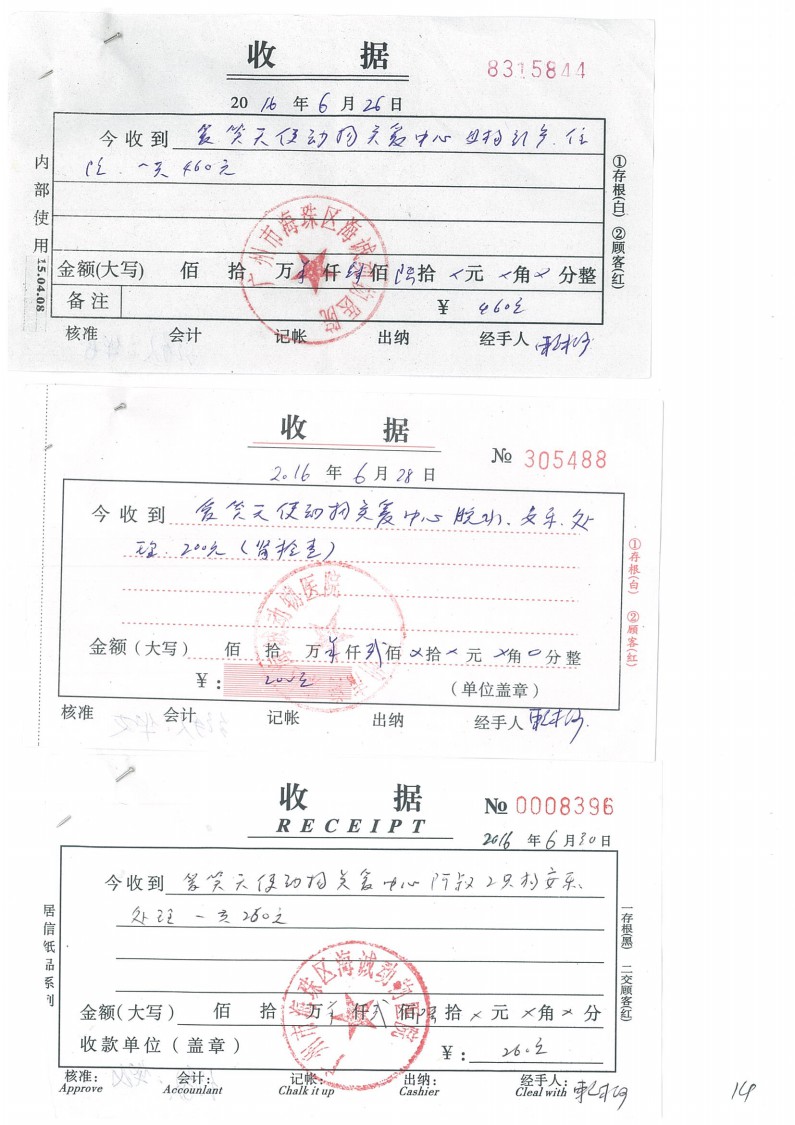 收 据
8315844
2016 年 6 月 26 日
今收到 微笑天使动物关爱中心
院. 一共460元
内部使用 15.04.08
①存根(白) ②顾客(红)
广州市海珠区海诚动物医院
金额(大写) 佰 拾 万 仟 肆佰 陆拾 ×元 ×角 × 分整
备注 ¥ 460元
核准 会计 记帐 出纳 经手人
收 据
№ 305488
2016 年 6 月 28 日
今收到 微笑天使动物关爱中心 脱水. 安乐. 处
理. 200元 (
①存根(白) ②顾客(红)
金额(大写) 佰 拾 万 仟 贰佰 ×拾 × 元 ×角 0 分整
¥: 200元 (单位盖章)
核准 会计 记帐 出纳 经手人
收 据
RECEIPT
№ 0008396
2016 年 6 月 30 日
今收到 微笑天使动物关爱中心 2只狗安乐.
处理 一共260元
居信纸品系列
一存根(黑) 二交顾客(红)
广州市海珠区海诚动物医院
金额(大写) 佰 拾 万 仟 贰佰 陆拾 × 元 ×角 × 分
收款单位(盖章) ¥: 260元
核准: 会计: 记帐: 出纳: 经手人:
Approve Accountant Chalk it up Cashier Cleal with
14